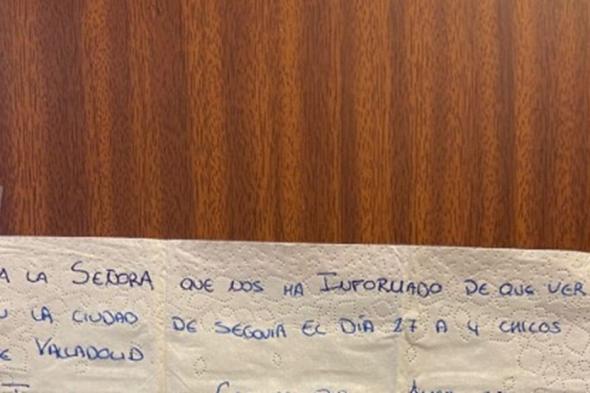 A LA SEÑORA QUE NOS HA INFORMADO DE QUE VER
LA CIUDAD DE SEGOVIA EL DÍA 27 A 4 CHICOS
VALLADOLID